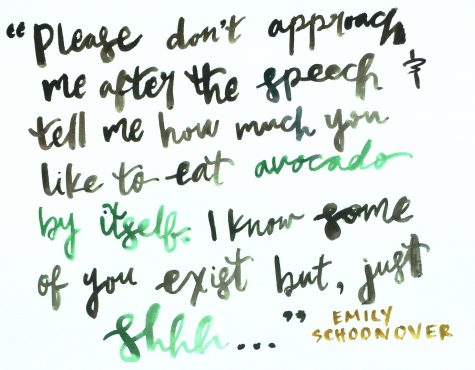 “Please don't approach
me after the speech &
tell me how much you
like to eat avocado
by itself. I know some
of you exist but, just
shhh...”
EMILY
SCHOONOVER